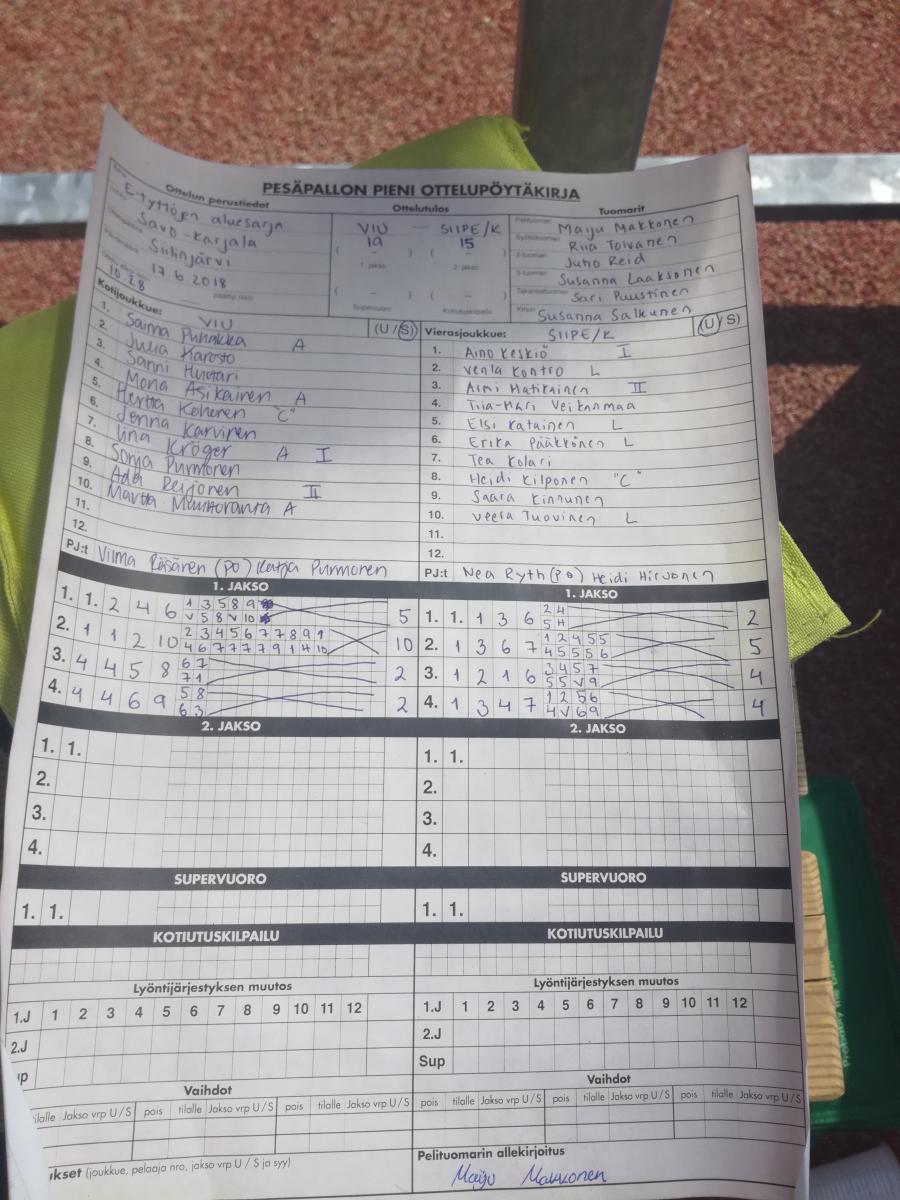 PESÄPALLON PIENI OTTELUPÖYTÄKIRJA
Ottelun perustiedot Ottelutulos Tuomarit
E-tyttöjen aluesarja
Savo-Karjala
Siilinjärvi
17.6 2018
10 28
VIU — SIIPE/K
19 15
1. jakso 2. jakso
Supervuoro Kotiutuskilpailu
Maiju Makkonen
Riia Toivanen
Juho Reid
Susanna Laaksonen
Sari Puustinen
Susanna Salkunen
Kotijoukkue: VIU (U/S)
1. Saima Puhakka A
2. Julia Karosto
3. Sanni Huttari
4. Mona Asikainen A
5. Hertta Kohonen "C"
6. Jenna Karvinen
7. Iina Kröger A I
8. Sonja Purmonen
9. Ada Reijonen II
10. Martta A
11.
12.
PJ:t Vilma Räsänen (PO) Katja Purmonen
Vierasjoukkue: SIIPE/K (U/S)
1. Aino Keskio I
2. Venla Kontro L
3. Armi Matikainen II
4. Tiia-Mari Veikanmaa
5. Elsi Katainen L
6. Erika Pääkkönen L
7. Tea Kolari
8. Heidi Kilponen "C"
9. Saara Kinnunen
10. Veera Tuovinen L
11.
12.
PJ:t Nea Ryth (PO) Heidi Hirvonen
1. JAKSO
1. 1. 2 4 6 1 3 5 8 9 5
V 5 8 V 10
2. 1 1 2 10 2 3 4 5 6 7 7 8 9 1 10
4 6 7 7 7 7 9 1 H 10
3. 4 4 5 8 6 7 2
7 1
4. 4 4 6 9 5 8 2
6 3
1. JAKSO
1. 1. 1 3 6 2 4 2
5 H
2. 1 3 6 7 1 2 4 5 5 5
4 5 5 5 6
3. 1 2 1 6 3 4 5 7 4
5 5 V 9
4. 1 3 4 7 1 2 5 6 4
4 V 6 9
2. JAKSO
1. 1.
2.
3.
4.
2. JAKSO
1. 1.
2.
3.
4.
SUPERVUORO
1. 1.
SUPERVUORO
1. 1.
KOTIUTUSKILPAILU
KOTIUTUSKILPAILU
Lyöntijärjestyksen muutos
1.J 1 2 3 4 5 6 7 8 9 10 11 12
2.J
up
Lyöntijärjestyksen muutos
1.J 1 2 3 4 5 6 7 8 9 10 11 12
2.J
Sup
Vaihdot
tilalle Jakso vrp U/S pois tilalle Jakso vrp U/S pois tilalle Jakso vrp U/S
Vaihdot
pois tilalle Jakso vrp U/S pois tilalle Jakso vrp U/S pois tilalle Jakso vrp U/S
ukset (joukkue, pelaaja nro, jakso vrp U / S ja syy)
Pelituomarin allekirjoitus
Maiju Makkonen